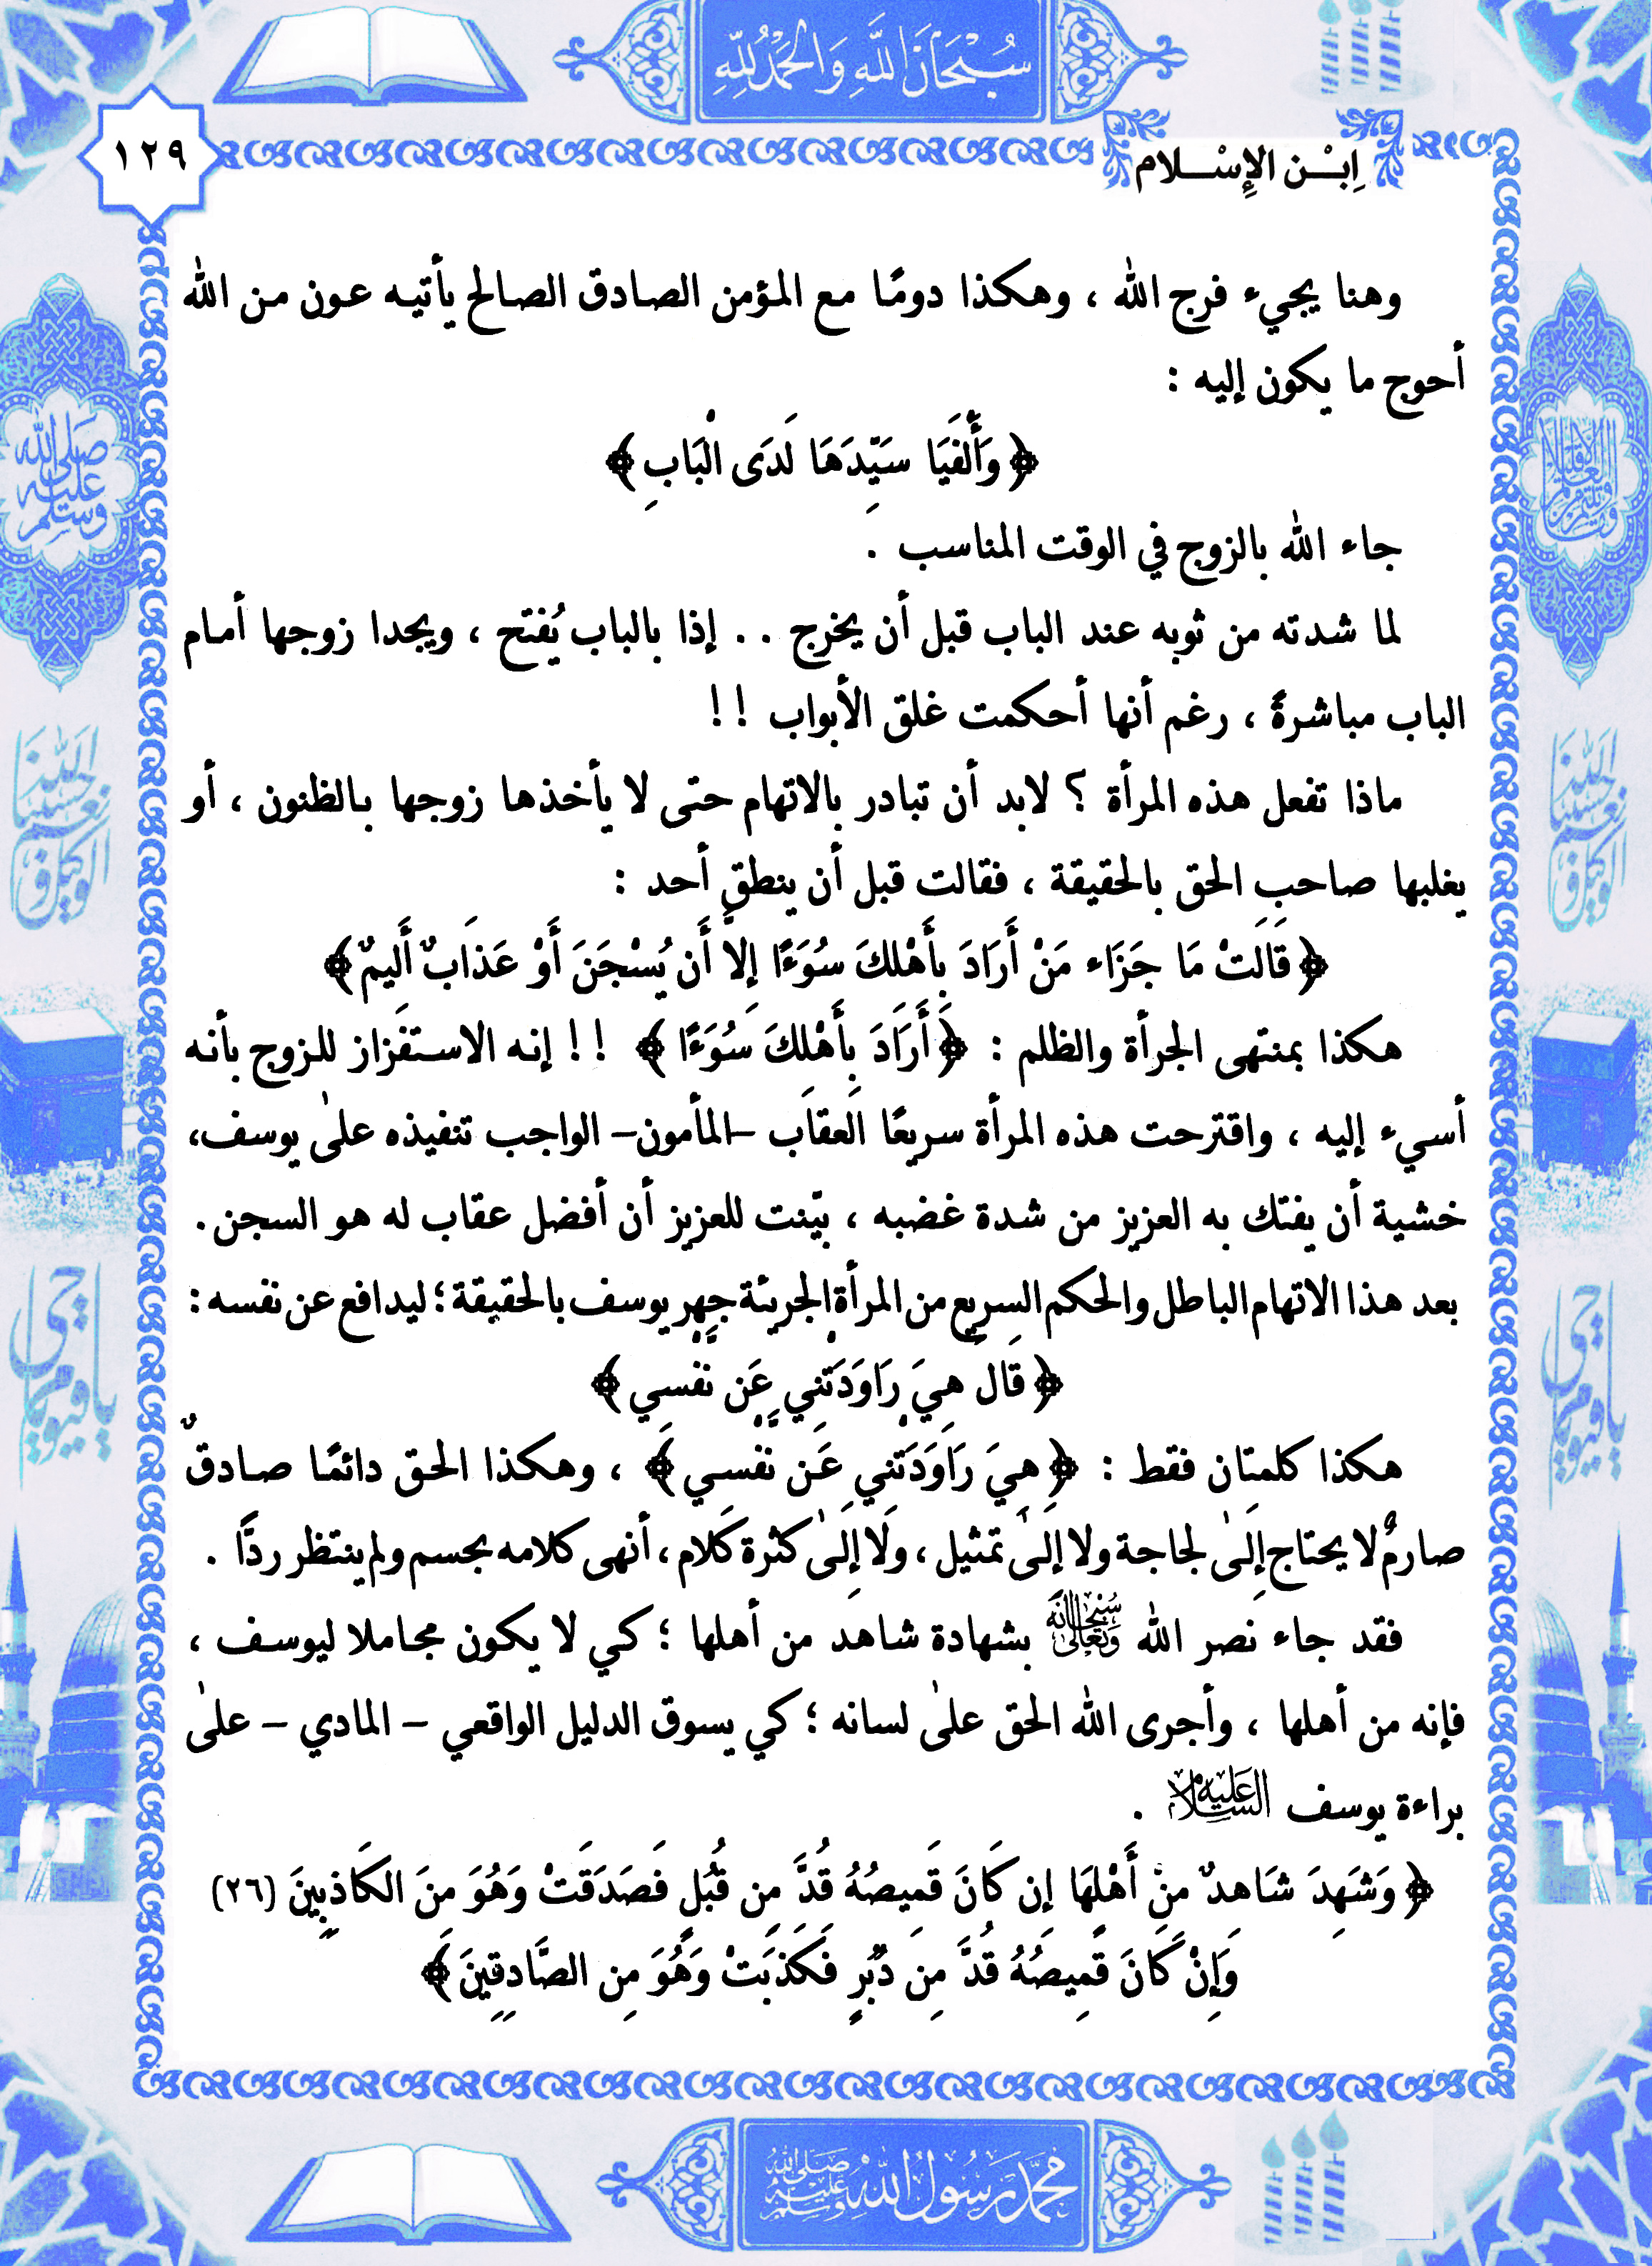 سُبْحَانَ اللَّهِ وَالْحَمْدُ لِلَّهِ
١٢٩
اِبْـن الإِسْـلام
وهنا يجيء فرج الله ، وهكذا دومًا مع المؤمن الصادق الصالح يأتيه عون من الله
أحوج ما يكون إليه :
﴿ وَأَلْفَيَا سَيِّدَهَا لَدَى الْبَابِ ﴾
جاء الله بالزوج في الوقت المناسب .
لما شدته من ثوبه عند الباب قبل أن يخرج . . إذا بالباب يُفتح ، ويجدا زوجها أمام
الباب مباشرةً ، رغم أنها أحكمت غلق الأبواب ! !
ماذا تفعل هذه المرأة ؟ لابد أن تبادر بالاتهام حتى لا يأخذها زوجها بالظنون ، أو
يغلبها صاحب الحق بالحقيقة ، فقالت قبل أن ينطق أحد :
﴿ قَالَتْ مَا جَزَاء مَنْ أَرَادَ بِأَهْلِكَ سُوَءًا إِلاَّ أَن يُسْجَنَ أَوْ عَذَابٌ أَلِيمٌ ﴾
هكذا بمنتهى الجرأة والظلم : ﴿ أَرَادَ بِأَهْلِكَ سُوَءًا ﴾ ! ! إنه الاستفزاز للزوج بأنه
أسيء إليه ، واقترحت هذه المرأة سريعًا العقاب –المأمون– الواجب تنفيذه علىٰ يوسف،
خشية أن يفتك به العزيز من شدة غضبه ، بيّنت للعزيز أن أفضل عقاب له هو السجن .
بعد هذا الاتهام الباطل والحكم السريع من المرأة الجريئة جهر يوسف بالحقيقة ؛ ليدافع عن نفسه :
﴿ قَالَ هِيَ رَاوَدَتْنِي عَن نفْسِي ﴾
هكذا كلمتان فقط : ﴿ هِيَ رَاوَدَتْنِي عَن نفْسِي ﴾ ، وهكذا الحق دائمًا صادقٌ
صارمٌ لا يحتاج إلىٰ لجاجة ولا إلىٰ تمثيل ، ولا إلىٰ كثرة كلام ، أنهى كلامه بحسم ولم ينتظر ردًّا .
فقد جاء نصر الله سُبْحَانَهُ وَتَعَالَىٰ بشهادة شاهد من أهلها ؛ كي لا يكون مجاملا ليوسف ،
فإنه من أهلها ، وأجرى الله الحق علىٰ لسانه ؛ كي يسوق الدليل الواقعي – المادي – علىٰ
براءة يوسف عليه السلام .
﴿ وَشَهِدَ شَاهِدٌ مِنْ أَهْلِهَا إِن كَانَ قَمِيصُهُ قُدَّ مِن قُبُلٍ فَصَدَقَتْ وَهُوَ مِنَ الكَاذِبِينَ (٢٦)
وَإِنْ كَانَ قَمِيصُهُ قُدَّ مِن دُبُرٍ فَكَذَبَتْ وَهُوَ مِن الصَّادِقِينَ ﴾
صلى الله عليه وسلم
حسبنا الله ونعم الوكيل
حسبنا الله ونعم الوكيل
يا حي يا قيوم
يا حي يا قيوم
مُحَمَّد رَسُولُ اللَّه صلى الله عليه وسلم